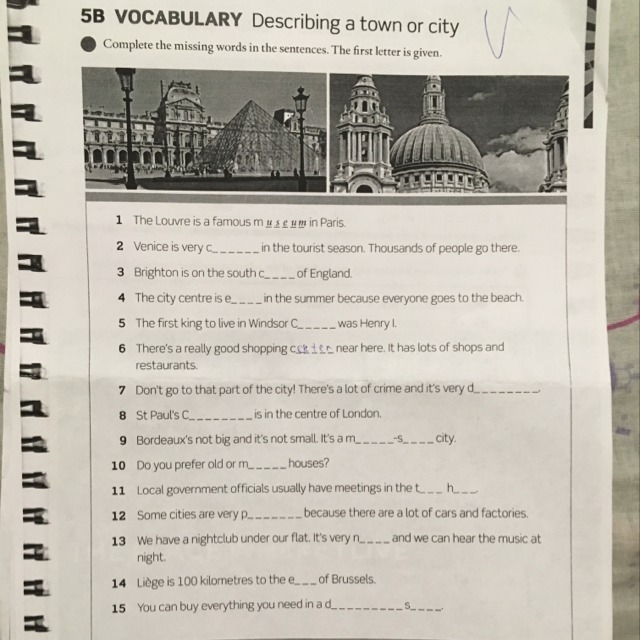 5B VOCABULARY Describing a town or city
Complete the missing words in the sentences. The first letter is given.
1 The Louvre is a famous m u s e u m in Paris.
2 Venice is very c_ _ _ _ _ _ in the tourist season. Thousands of people go there.
3 Brighton is on the south c_ _ _ _ of England.
4 The city centre is e_ _ _ _ in the summer because everyone goes to the beach.
5 The first king to live in Windsor C_ _ _ _ _ was Henry I.
6 There's a really good shopping center near here. It has lots of shops and
restaurants.
7 Don't go to that part of the city! There's a lot of crime and it's very d_ _ _ _ _ _ _ _.
8 St Paul's C_ _ _ _ _ _ _ _ is in the centre of London.
9 Bordeaux's not big and it's not small. It's a m_ _ _ _ _-s_ _ _ _ city.
10 Do you prefer old or m_ _ _ _ _ houses?
11 Local government officials usually have meetings in the t_ _ _ h_ _ _.
12 Some cities are very p_ _ _ _ _ _ _ because there are a lot of cars and factories.
13 We have a nightclub under our flat. It's very n_ _ _ _ and we can hear the music at
night.
14 Liège is 100 kilometres to the e_ _ _ of Brussels.
15 You can buy everything you need in a d_ _ _ _ _ _ _ _ _ s_ _ _ _.